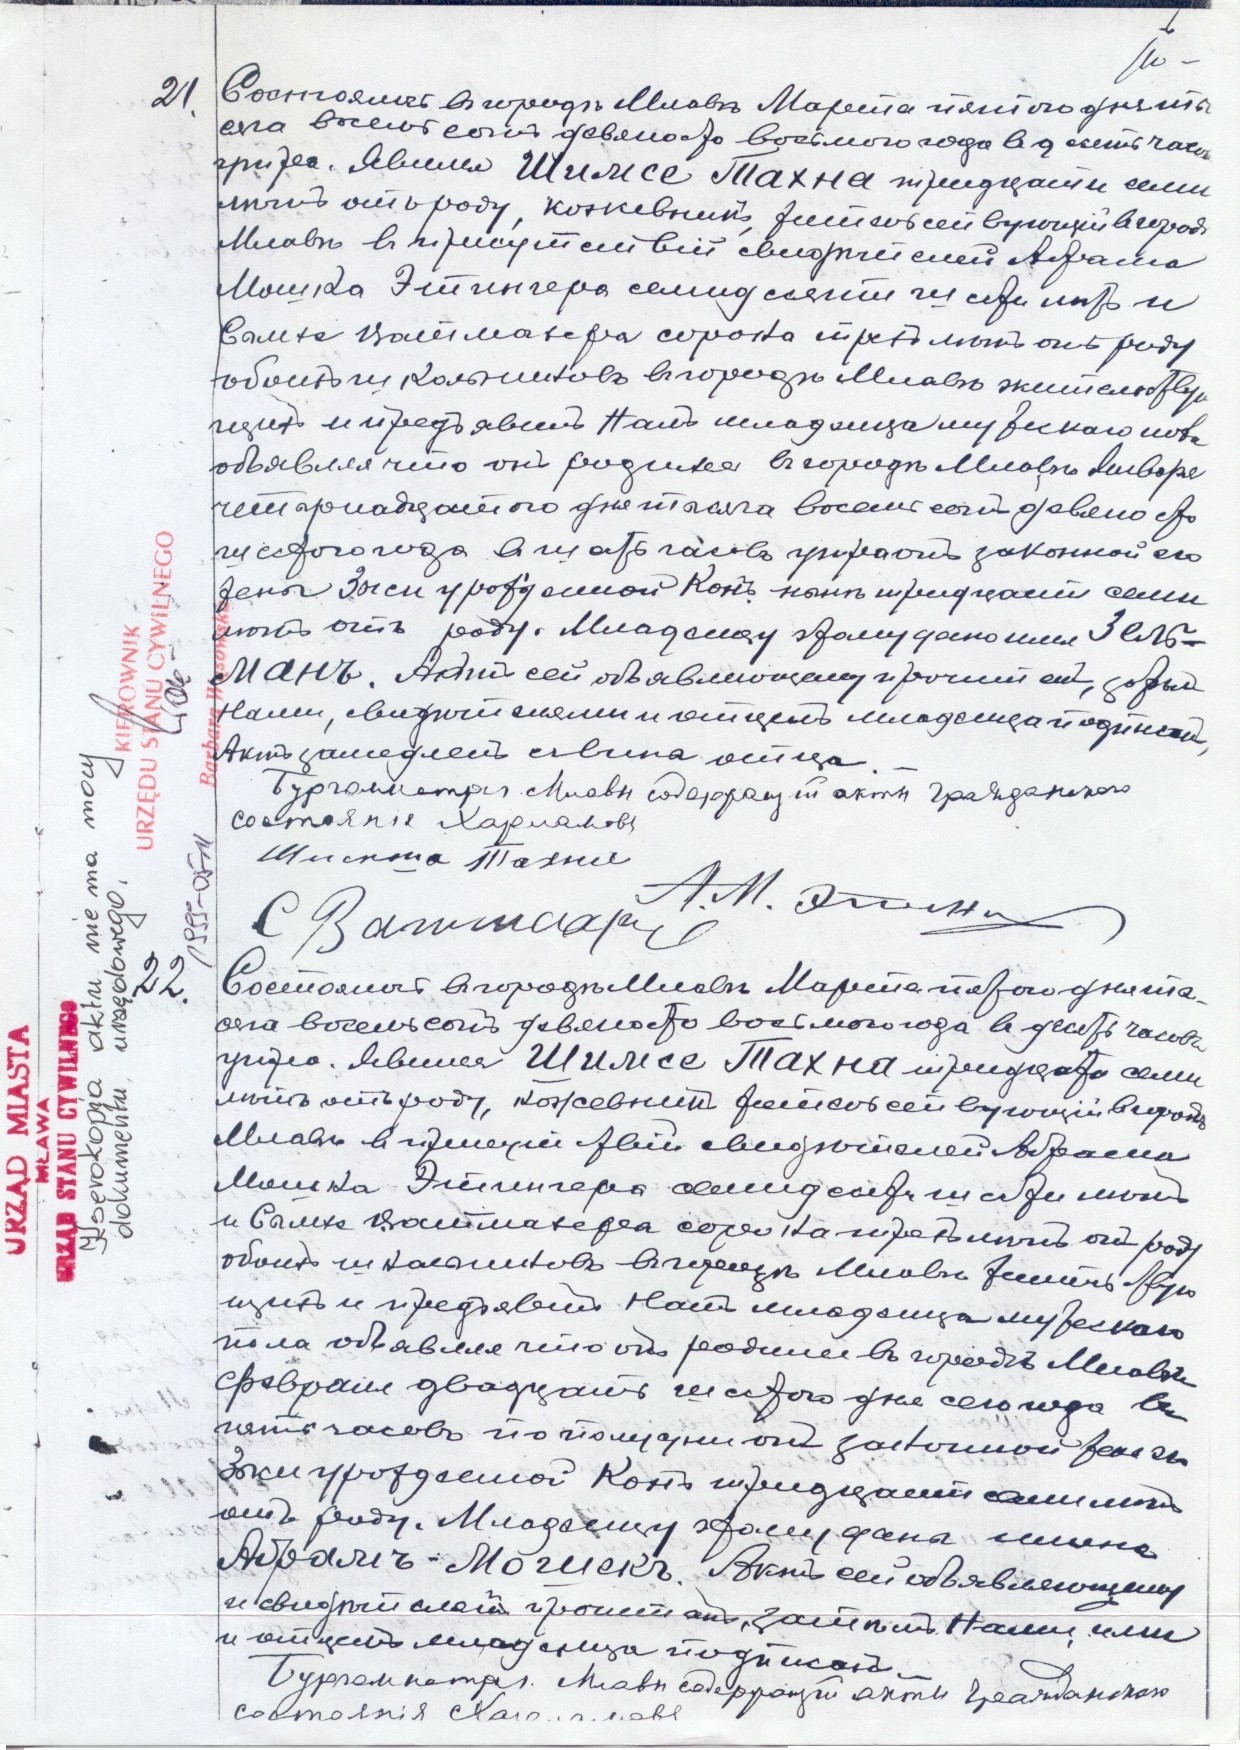 21. Состоялось въ городѣ Млавѣ Марта пятого дня ты-
сяча восемьсотъ девяносто восьмого года въ девять часовъ
утра. Явился Шимсе Тахна тридцати семи
лѣтъ отъ роду, кожевникъ, жительствующій въ городѣ
Млавѣ въ присутствіи свидѣтелей Абрама
Мошка Этингера семидесяти шести лѣтъ и
Сымхе Ваш сорока трехъ лѣтъ отъ роду
обоихъ школьниковъ въ городѣ Млавѣ жительствую-
щихъ и предъявилъ Намъ младенца мужескаго пола
объявляя что онъ родился въ городѣ Млавѣ Января
четырнадцатого дня тысяча восемьсотъ девяносто
шестого года въ шесть часовъ утра отъ законной его
жены урожденной Конъ нынѣ тридцати семи
лѣтъ отъ роду. Младенцу этому дано имя Зель-
манъ. Актъ сей объявляющему прочитанъ,
Нами, свидѣтелями и отцемъ младенца подписанъ,
Актъ замедленъ съ вина отца.
Бургомистръ г. Млавы содержащій акты гражданского
состоянія Харламовъ
Тахна
А. М.
С
22. Состоялось въ городѣ Млавѣ Марта пятого дня ты-
сяча восемьсотъ девяносто восьмого года въ десять часовъ
утра. Явился Шимсе Тахна тридцати семи
лѣтъ отъ роду, кожевникъ жительствующій въ городѣ
Млавѣ въ присутствіи свидѣтелей Абрама
Мошка Этингера семидесяти шести лѣтъ
и Сымхе сорока трехъ лѣтъ отъ роду
обоихъ школьниковъ въ городѣ Млавѣ жительствую-
щихъ и предъявилъ Намъ младенца мужескаго
пола объявляя что онъ родился въ городѣ Млавѣ
Февраля двадцать шестого дня сего года въ
часовъ пополудни отъ законной жены
урожденной Конъ тридцати семи лѣтъ
отъ роду. Младенцу этому даны имена
Абрамъ-Мошекъ. Актъ сей объявляющему
и свидѣтелямъ прочитанъ, затѣмъ Нами, ими
и отцемъ младенца подписанъ.
Бургомистръ г. Млавы содержащій акты гражданского
состоянія Харламовъ
URZĄD MIASTA
MŁAWA
URZĄD STANU CYWILNEGO
Kserokopia aktu nie ma mocy
dokumentu urzędowego.
KIEROWNIK
URZĘDU STANU CYWILNEGO
Barbara